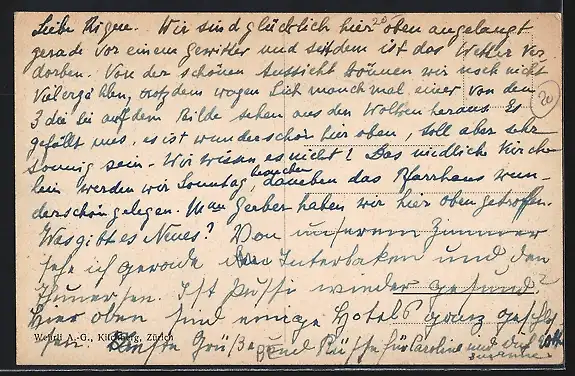 Liebe Rigen. Wir sind glücklich hier oben angelangt
gerade vor einem Gewitter und seitdem ist das Wetter ver
dorben. Von der schönen Aussicht können wir noch nicht
viel erzählen, trotzdem wagen sich manchmal einer von den
3 die sie auf dem Bilde sehen aus den Wolken heraus. Es
gefällt uns, es ist wunderschön hier oben, soll aber sehr
sonnig sein. Wir wissen es nicht! Das niedliche Kirche
lein werden wir Sonntag besuchen, daneben das Pfarrhaus wun-
derschön gelegen. Gerber haben wir hier oben getroffen.
Was gibt es Neues? Von unserem Zimmer
sehe ich gerade Interlaken und den
Thunersee. Ist Pussi wieder gesund?
Hier oben sind einige Hotels ganz geschlos
sen. Grüße und Küsse für Caroline und dich
Wehrli A.-G., Kilchberg, Zürich
20